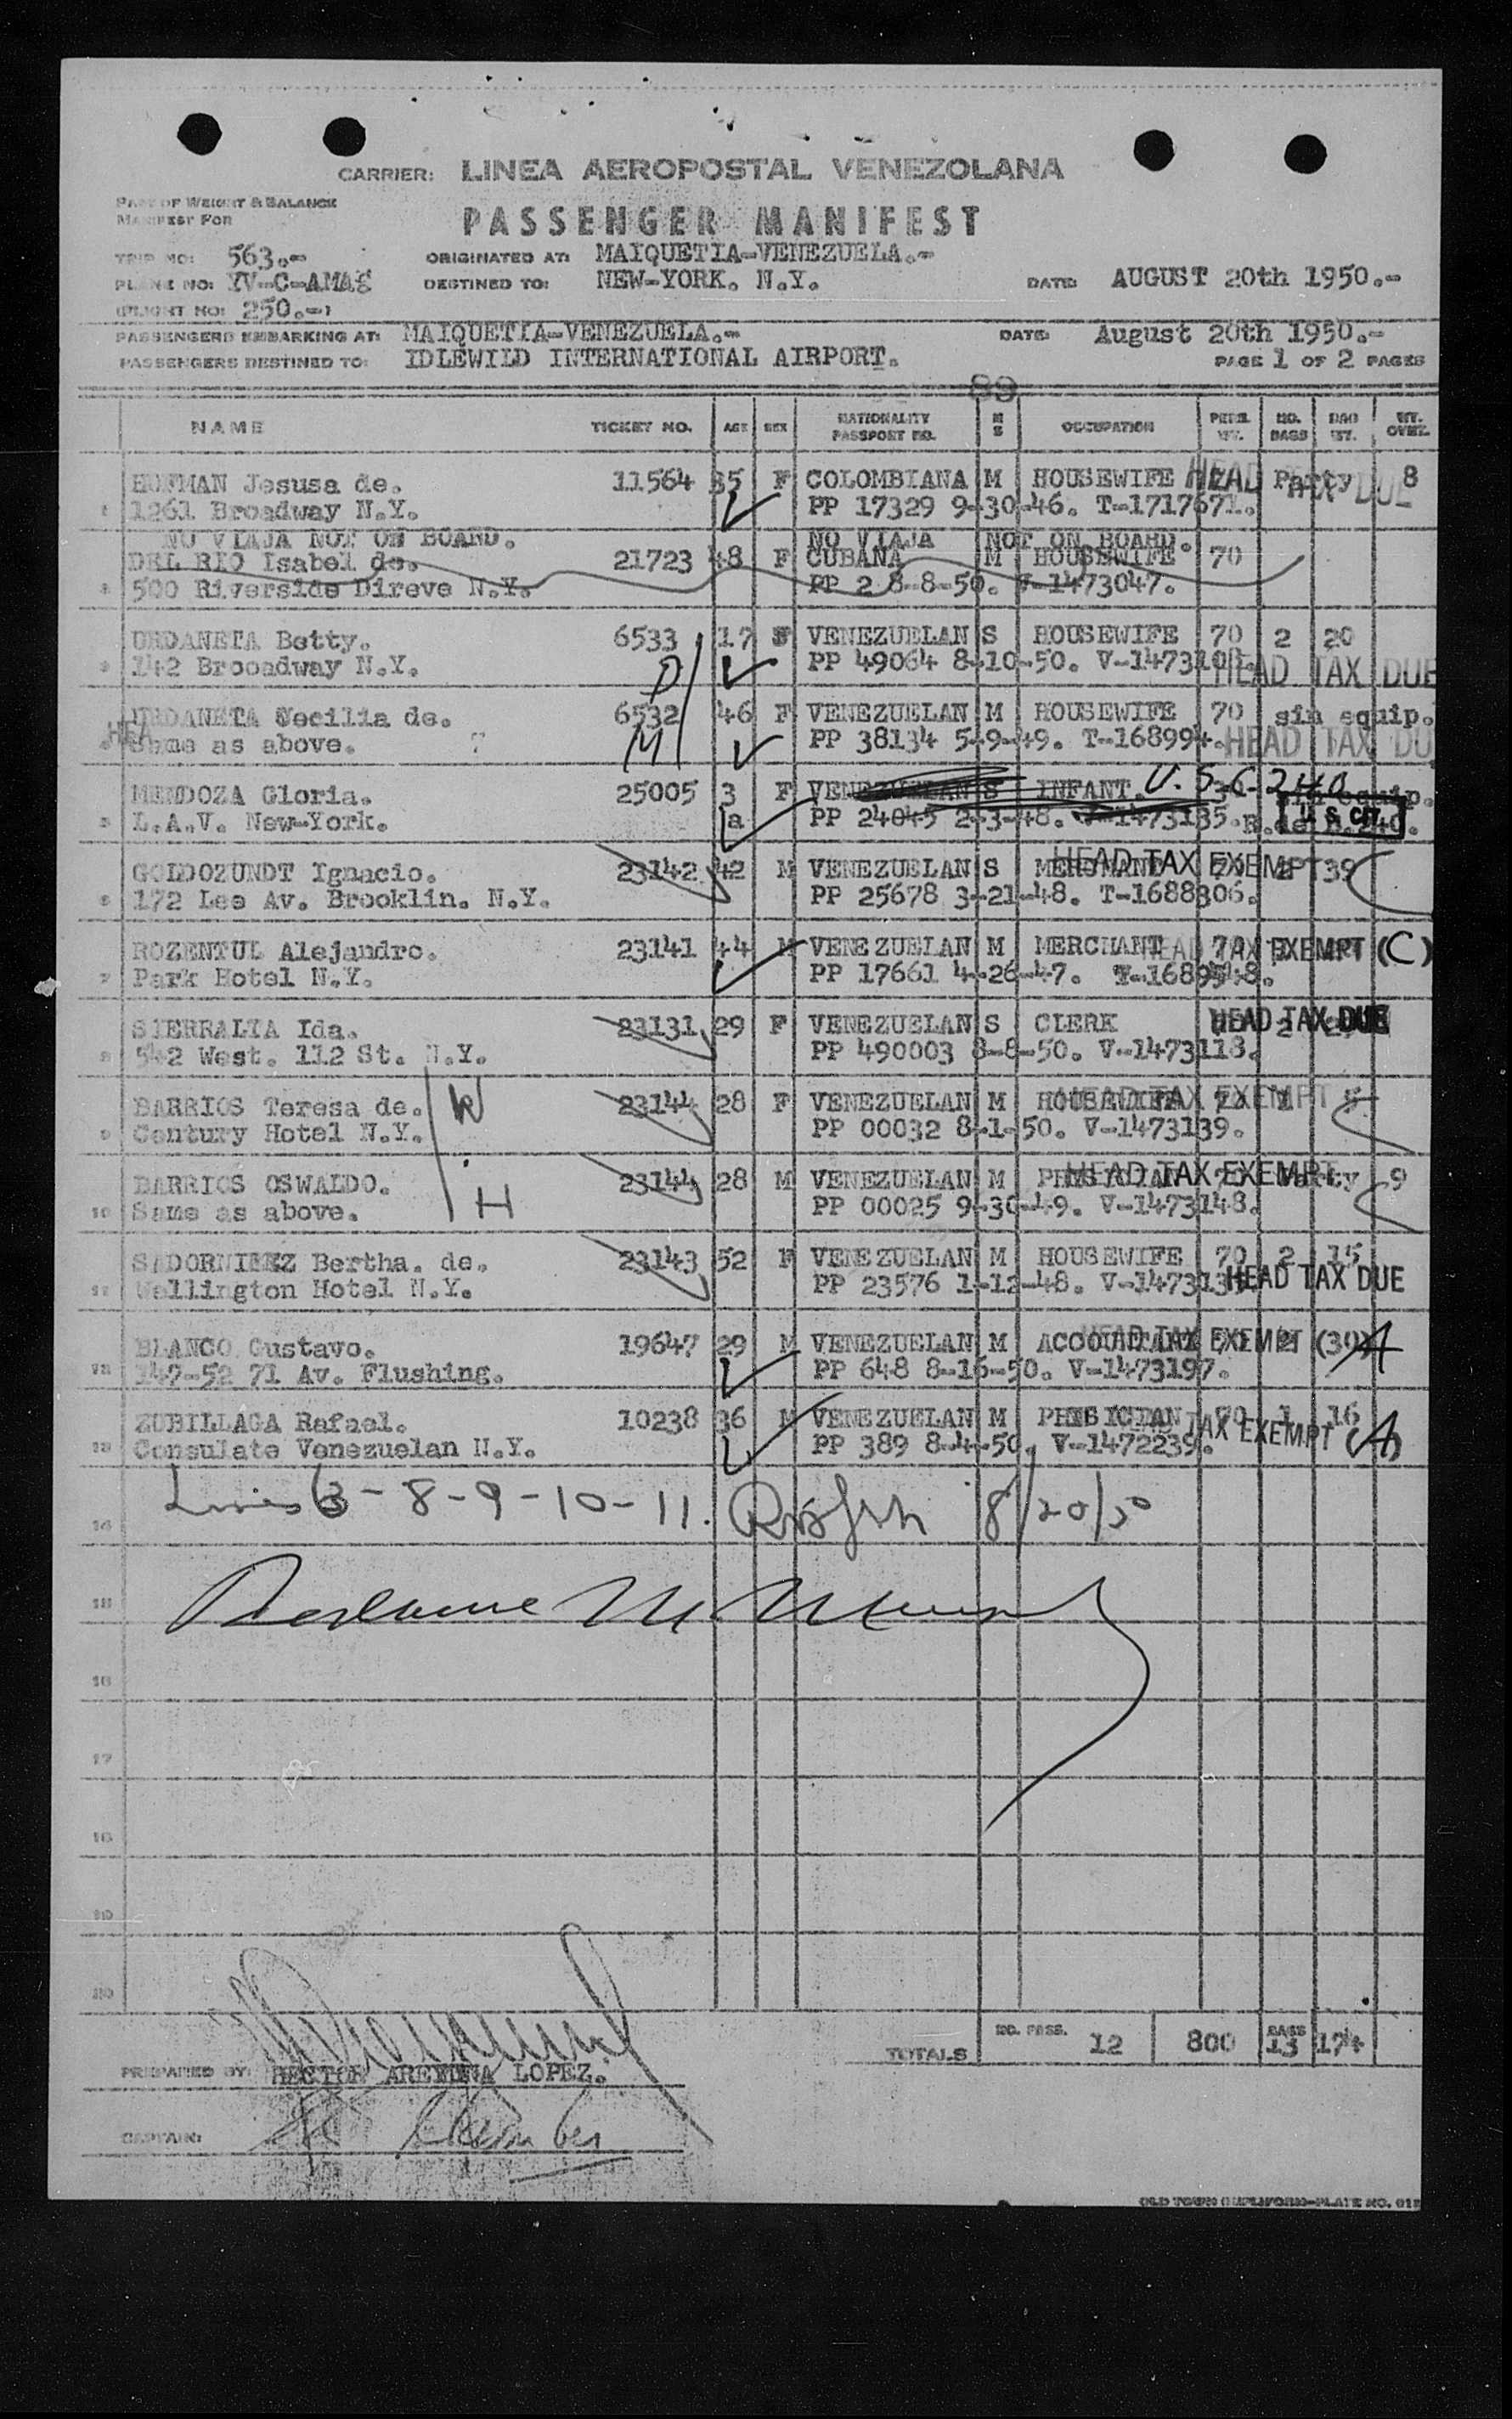 CARRIER: LINEA AEROPOSTAL VENEZOLANA
PART OF WEIGHT & BALANCE
MANIFEST FOR
PASSENGER MANIFEST
TRIP NO: 563.-
ORIGINATED AT: MAIQUETIA-VENEZUELA.-
PLANE NO: YV-C-AMAS
DESTINED TO: NEW-YORK. N.Y.
DATE: AUGUST 20th 1950.-
FLIGHT NO: 250.-
PASSENGERS EMBARKING AT: MAIQUETIA-VENEZUELA.-
DATE: August 20th 1950.-
PASSENGERS DESTINED TO: IDLEWILD INTERNATIONAL AIRPORT.
PAGE 1 OF 2 PAGES
89
NAME TICKET NO. AGE SEX NATIONALITY PASSPORT NO. M S OCCUPATION PERS. WT. NO. BAGS BAG WT. WT. OVER.
HOFMAN Jesusa de. 11564 35 F COLOMBIANA M HOUSEWIFE Party 8
HEAD TAX DUE
1 1261 Broadway N.Y. PP 17329 9-30-46. T-1717671.
NO VIAJA NOT ON BOARD. NO VIAJA NOT ON BOARD.
DEL RIO Isabel de. 21723 48 F CUBANA M HOUSEWIFE 70
500 Riverside Direve N.Y. PP 2 8-8-50. V-1473047.
URDANETA Betty. 6533 17 F VENEZUELAN S HOUSEWIFE 70 2 20
142 Brooadway N.Y. D PP 49064 8-10-50. HEAD TAX DUE
URDANETA Cecilia de. 6532 46 F VENEZUELAN M HOUSEWIFE 70 sin equip.
Same as above. M PP 38134 5-9-49. T-168994. HEAD TAX DU
MENDOZA Gloria. 25005 3 F VENEZUELAN S INFANT. U.S.C. 240 sin equip.
L.A.V. New-York. a PP 24045 2-3-48. V-1473135. U S CIT
GOLDOZUNDT Ignacio. 23142 42 M VENEZUELAN S 39
HEAD TAX EXEMPT
172 Lee Av. Brooklin. N.Y. PP 25678 3-21-48. T-1688306.
ROZENTUL Alejandro. 23141 44 M VENEZUELAN M MERCHANT 70
HEAD TAX EXEMPT (C)
7 Park Hotel N.Y. PP 17661 4-26-47.
SIERRALTA Ida. 23131 29 F VENEZUELAN S CLERK 2
HEAD TAX DUE
542 West. 112 St. N.Y. PP 490003 8-8-50. V-1473118.
BARRIOS Teresa de. W 23144 28 F VENEZUELAN M HOUSEWIFE 70
HEAD TAX EXEMPT
Century Hotel N.Y. PP 00032 8-1-50. V-1473139.
BARRIOS OSWALDO. 23144 28 M VENEZUELAN M PHYSICIAN 70 Party 9
HEAD TAX EXEMPT
10 Same as above. H PP 00025 9-30-49. V-1473148.
SADORNIBEZ Bertha. de. 23143 52 F VENEZUELAN M HOUSEWIFE 70 2 15
11 Wellington Hotel N.Y. PP 23576 1-12-48. HEAD TAX DUE
BLANCO Gustavo. 19647 29 M VENEZUELAN M ACCOUNTANT 70 2 (30)
HEAD TAX EXEMPT A
147-52 71 Av. Flushing. PP 648 8-16-50. V-1473197.
ZUBILLAGA Rafael. 10238 36 M VENEZUELAN M PHISICIAN 70 1 16
13 Consulate Venezuelan N.Y. PP 389 8-4-50. V-1472239. TAX EXEMPT (A)
Lines 3-8-9-10-11. 8/20/50
14
15
16
17
18
19
20
TOTALS NO. PASS. 12 800 BAGS 13 174
PREPARED BY: HECTOR AREYUNA LOPEZ.
CAPTAIN: